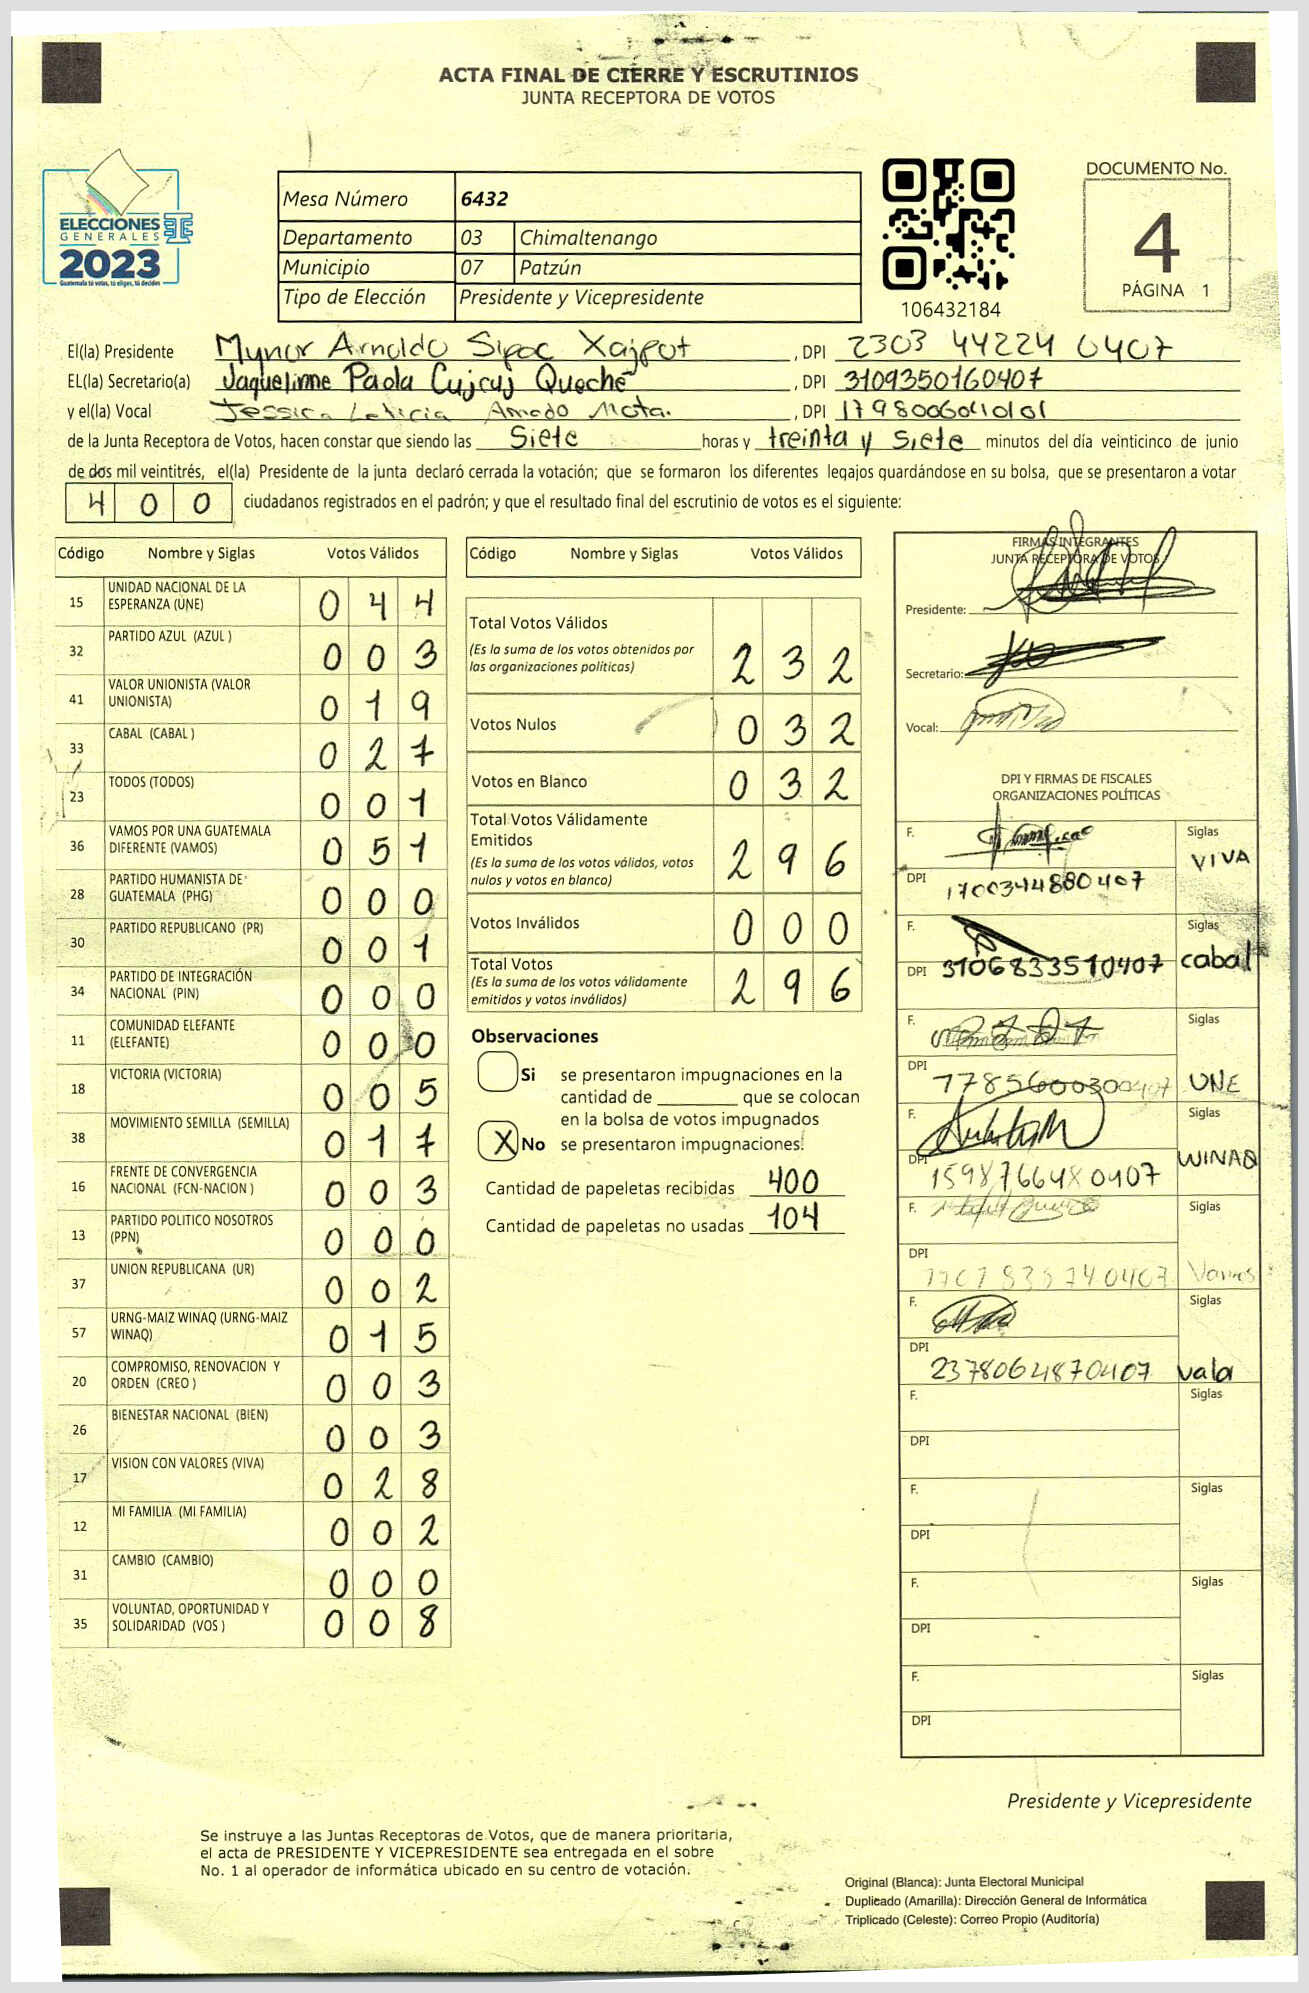 ACTA FINAL DE CIERRE Y ESCRUTINIOS
JUNTA RECEPTORA DE VOTOS
ELECCIONES
GENERALES
2023
Guatemala tú votas, tú eliges, tú decides
Mesa Número 6432
Departamento 03 Chimaltenango
Municipio 07 Patzún
Tipo de Elección Presidente y Vicepresidente
106432184
DOCUMENTO No.
4
PÁGINA 1
El(la) Presidente Mynor Arnoldo Sipac Xajpot , DPI 2303 44224 0407
EL(la) Secretario(a) Jaquelinne Paola Cujcuj Queché , DPI 3109350160407
y el(la) Vocal Jessica Leticia Amado Mota. , DPI 1798006040101
de la Junta Receptora de Votos, hacen constar que siendo las Siete horas y treinta y siete minutos del día veinticinco de junio
de dos mil veintitrés, el(la) Presidente de la junta declaró cerrada la votación; que se formaron los diferentes legajos guardándose en su bolsa, que se presentaron a votar
400 ciudadanos registrados en el padrón; y que el resultado final del escrutinio de votos es el siguiente:
Código Nombre y Siglas Votos Válidos
15 UNIDAD NACIONAL DE LA ESPERANZA (UNE) 044
32 PARTIDO AZUL (AZUL ) 003
41 VALOR UNIONISTA (VALOR UNIONISTA) 019
33 CABAL (CABAL ) 027
23 TODOS (TODOS) 001
36 VAMOS POR UNA GUATEMALA DIFERENTE (VAMOS) 051
28 PARTIDO HUMANISTA DE GUATEMALA (PHG) 000
30 PARTIDO REPUBLICANO (PR) 001
34 PARTIDO DE INTEGRACIÓN NACIONAL (PIN) 000
11 COMUNIDAD ELEFANTE (ELEFANTE) 000
18 VICTORIA (VICTORIA) 005
38 MOVIMIENTO SEMILLA (SEMILLA) 017
16 FRENTE DE CONVERGENCIA NACIONAL (FCN-NACION ) 003
13 PARTIDO POLITICO NOSOTROS (PPN) 000
37 UNION REPUBLICANA (UR) 002
57 URNG-MAIZ WINAQ (URNG-MAIZ WINAQ) 015
20 COMPROMISO, RENOVACION Y ORDEN (CREO ) 003
26 BIENESTAR NACIONAL (BIEN) 003
17 VISION CON VALORES (VIVA) 028
12 MI FAMILIA (MI FAMILIA) 002
31 CAMBIO (CAMBIO) 000
35 VOLUNTAD, OPORTUNIDAD Y SOLIDARIDAD (VOS ) 008
Código Nombre y Siglas Votos Válidos
Total Votos Válidos 232
(Es la suma de los votos obtenidos por
las organizaciones políticas)
Votos Nulos 032
Votos en Blanco 032
Total Votos Válidamente
Emitidos 296
(Es la suma de los votos válidos, votos
nulos y votos en blanco)
Votos Inválidos 000
Total Votos 296
(Es la suma de los votos válidamente
emitidos y votos inválidos)
Observaciones
Si se presentaron impugnaciones en la
cantidad de ________ que se colocan
en la bolsa de votos impugnados
X No se presentaron impugnaciones.
Cantidad de papeletas recibidas 400
Cantidad de papeletas no usadas 104
FIRMAS INTEGRANTES
JUNTA RECEPTORA DE VOTOS
Presidente:
Secretario:
Vocal:
DPI Y FIRMAS DE FISCALES
ORGANIZACIONES POLÍTICAS
F. Siglas VIVA
DPI 1700344880407
F. Siglas cabal
DPI 3106833510407
F. Siglas UNE
DPI 1785600300407
F. Siglas WINAQ
DPI 1598766480407
F. Siglas Vamos
DPI
F. Siglas vala
DPI 2378064870407
F. Siglas
DPI
F. Siglas
DPI
F. Siglas
DPI
F. Siglas
DPI
Presidente y Vicepresidente
Se instruye a las Juntas Receptoras de Votos, que de manera prioritaria,
el acta de PRESIDENTE Y VICEPRESIDENTE sea entregada en el sobre
No. 1 al operador de informática ubicado en su centro de votación.
Original (Blanca): Junta Electoral Municipal
Duplicado (Amarilla): Dirección General de Informática
Triplicado (Celeste): Correo Propio (Auditoría)